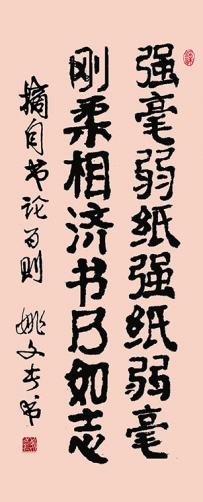 强毫弱纸强纸弱毫
刚柔相济书乃如志
摘自书论百则 姚文奎书